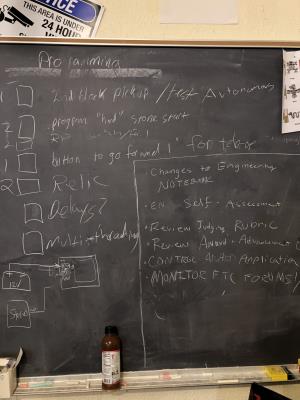 NOTICE
THIS AREA IS UNDER
24 HOUR
Programming
1 2nd block pickup / test Autonomous
2 program "hnd" stone start
2
1 button to go forward 1" for
2 Relic
Delays?
multi-threading
12V
• Changes to Engineering
NOTEBOOK
• EN Self-Assessment
• Review Judging Rubric
• Review Award • Advancement
• CONTROL Award Application
• MONITOR FTC FORUMS!